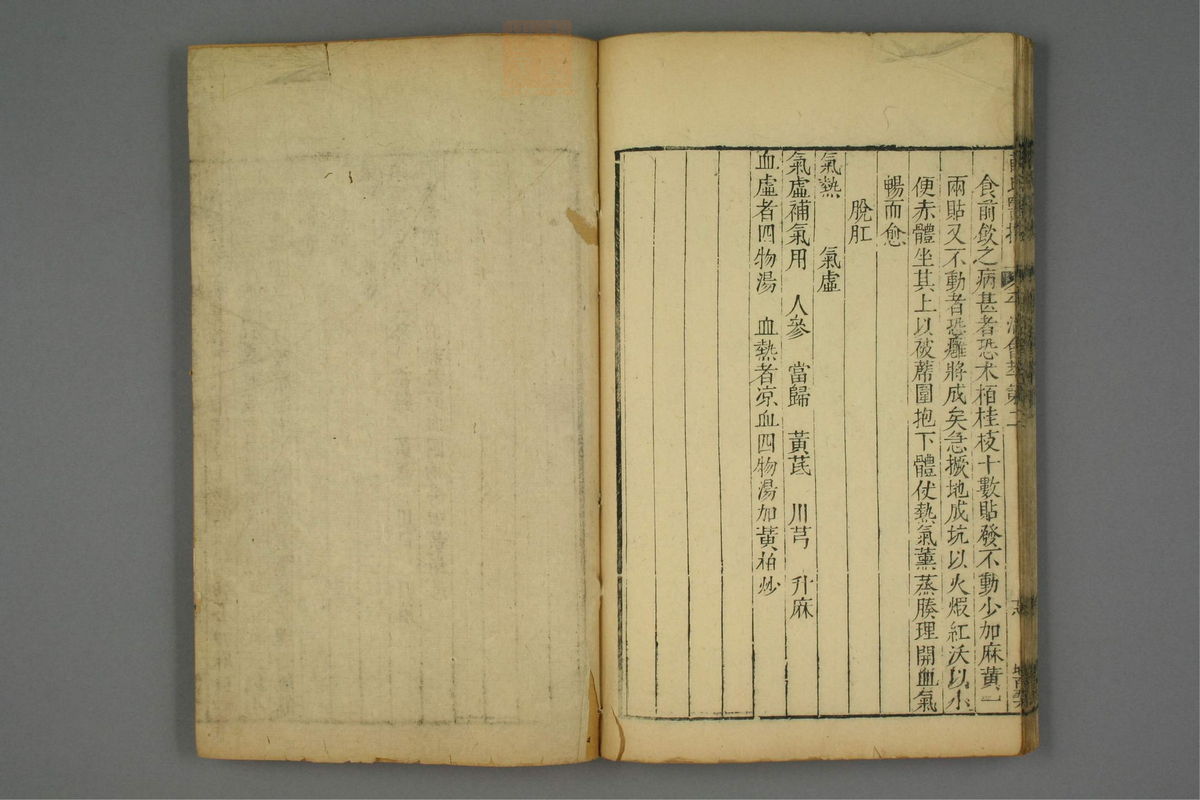 食前飲之病甚者恐术栢桂枝十數貼發不動少加麻黄一
兩貼又不動者恐癰將成矣急掀地成坑以火煆紅沃以小
便赤體坐其上以被蓆圍抱下體仗熱氣薰蒸腠理開血氣
暢而愈
脫肛
氣熱 氣虛
氣虛補氣用 人參 當歸 黃芪 川芎 升麻
血虛者四物湯 血熱者凉血四物湯加黃柏炒